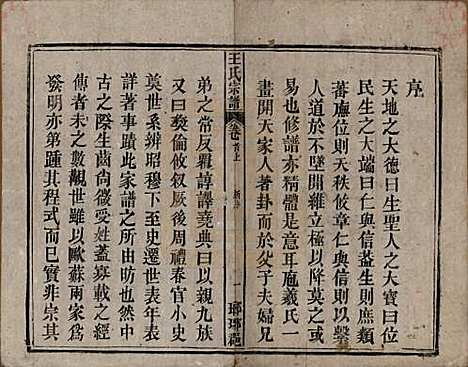 序
天地之大德曰生聖人之大寶曰位
民生之大端曰仁與信益生則庶類
蕃廡位則天秩攸章仁與信以繫
人道於不墜開維立極以降莫之或
易也修譜亦精體是意耳庖羲氏一
畫開天家人著卦而於父子夫婦兄
王氏宗譜
卷首上
一
瑯琊
弟之常反覆諄諄堯典曰以親九族
又曰彝倫攸叙厥後周禮春官小史
奠世系辨昭穆下至史遷世表年表
中宗譜此家譜之所由昉與
古之際生齒尚微受姓蓋寡載之經
傳者未之數觀世雖以歐蘇兩家為
發明亦第踵其程式而已實非宗其